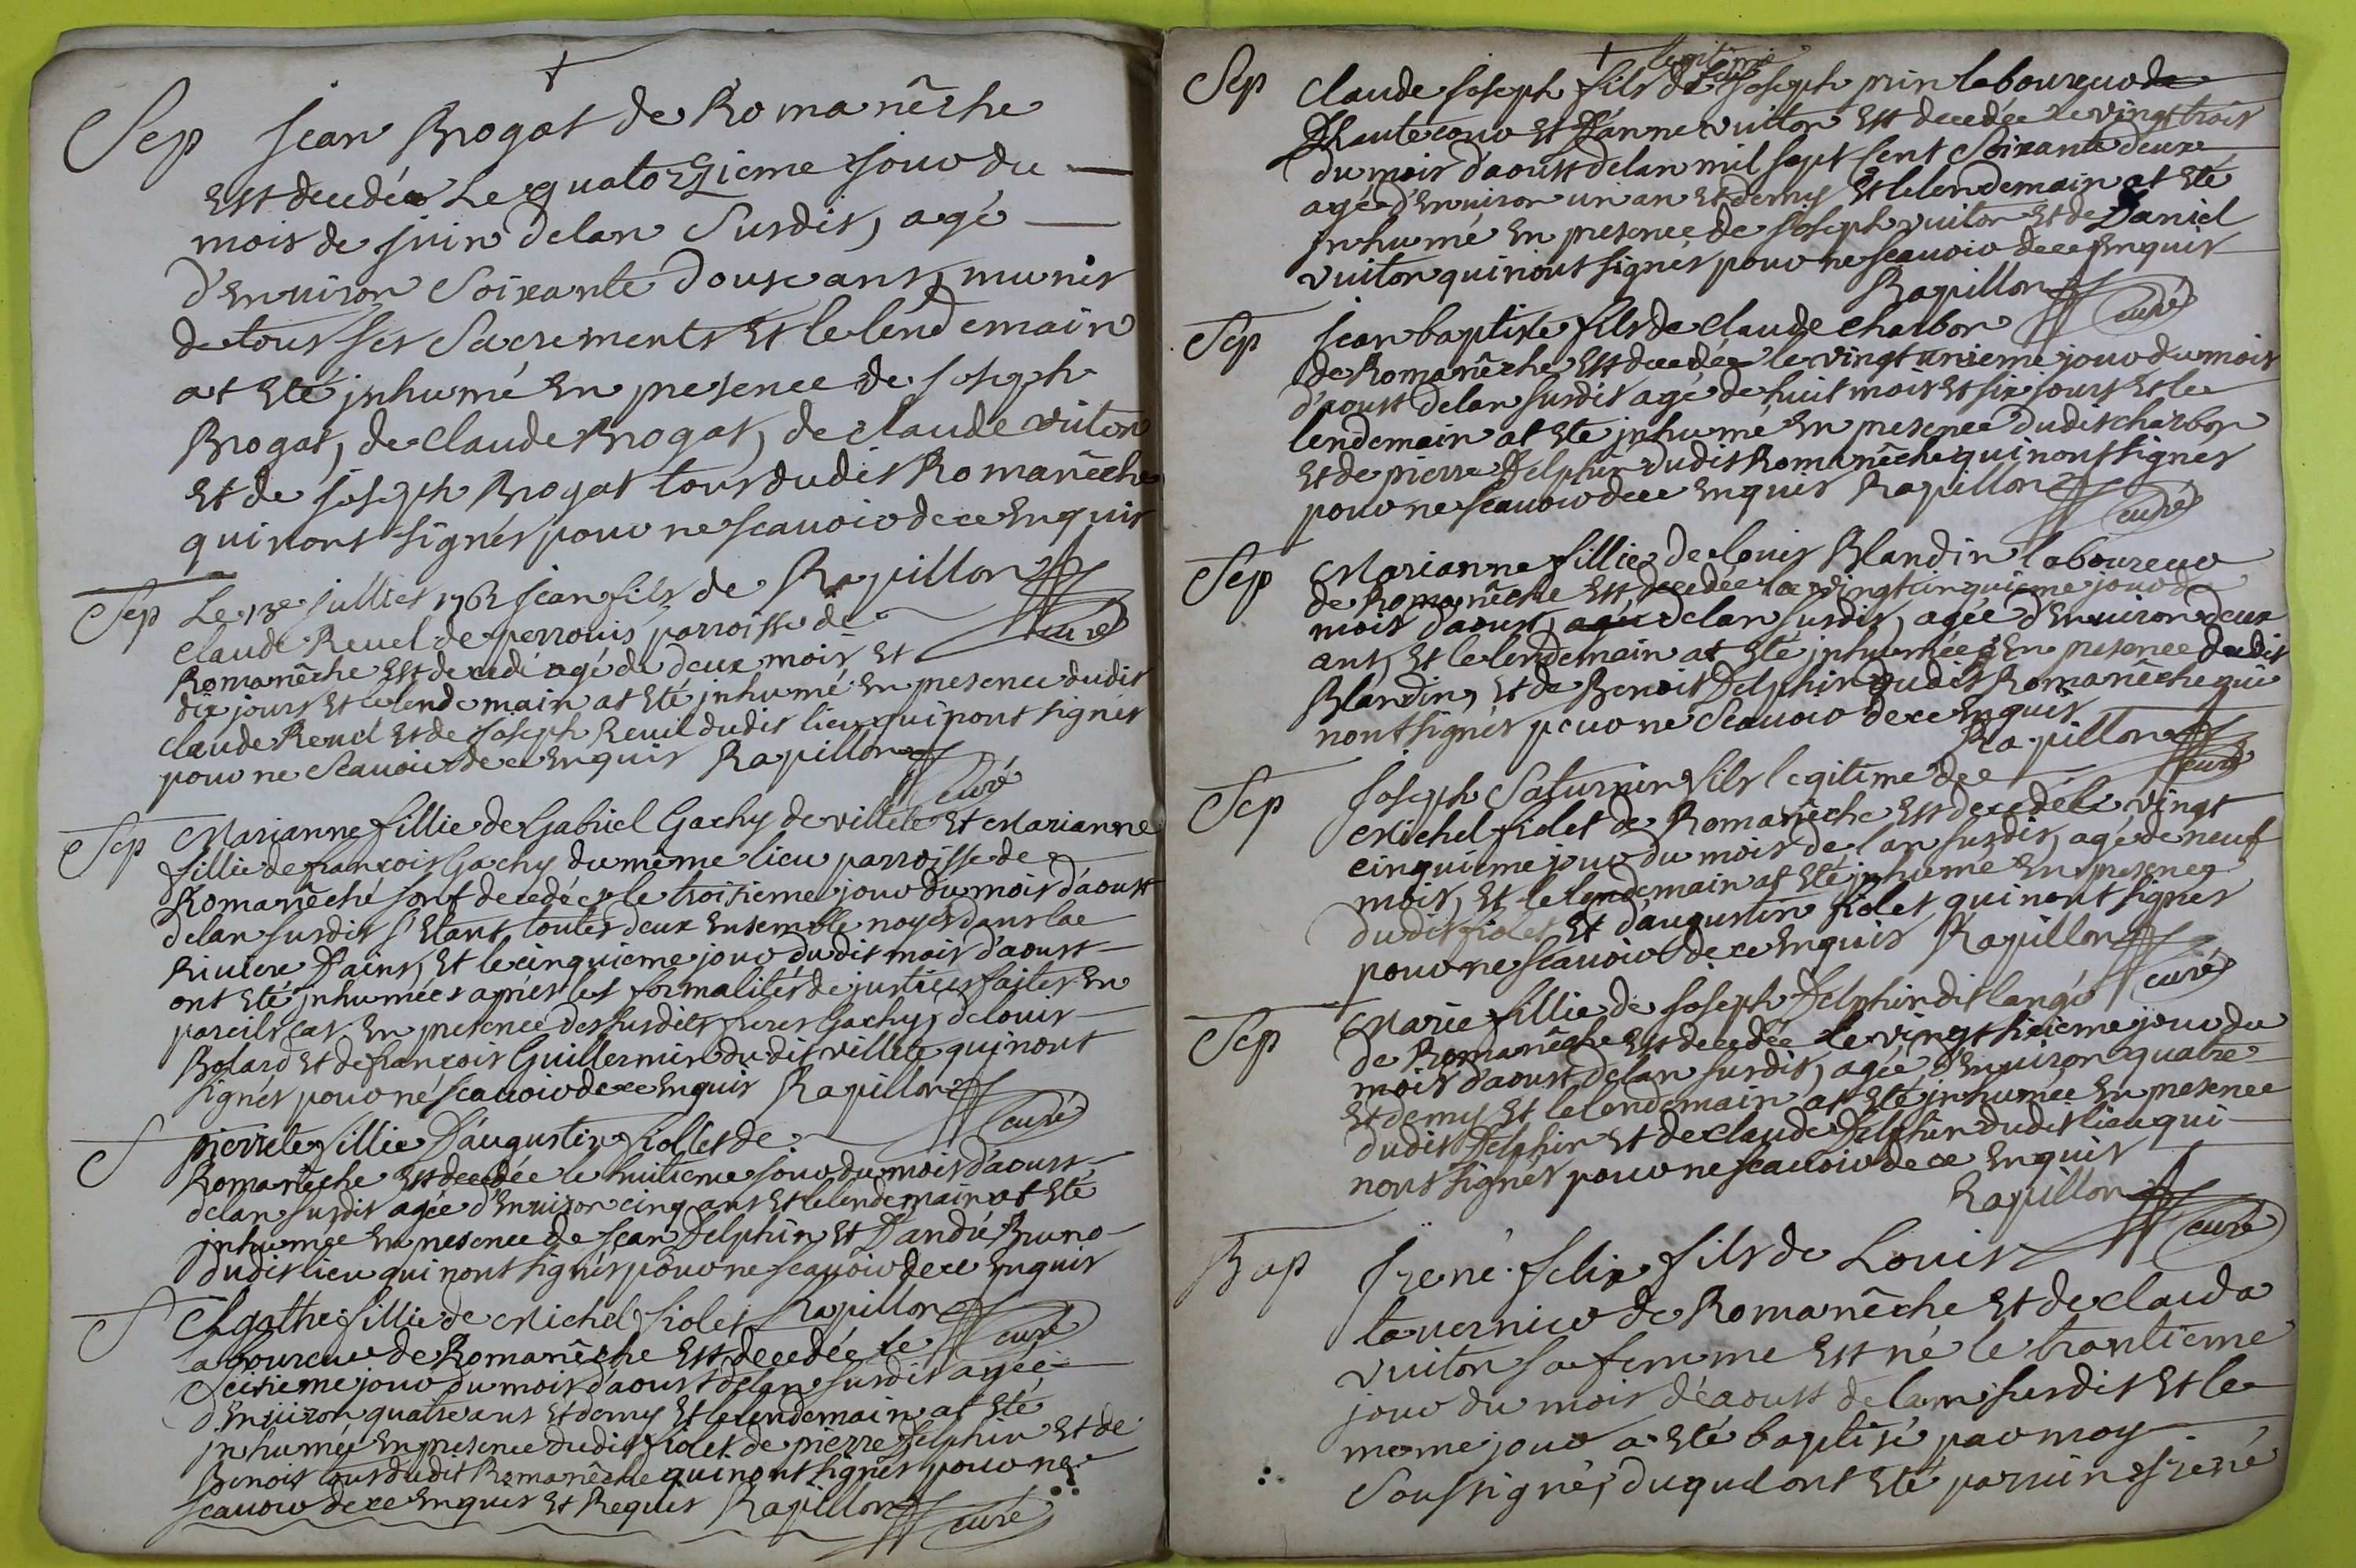 Sep Jean Brogat de Romanêche
Est decedéé Le quatorzieme jour du
mois de juin delan Susdit, agé
d'Environ Soixante Douse ans, munis
de tous ses Sacrements Et le lendemain
at Eté jnhumé En presence de joseph
Brogat, de claude Brogat, de claude viton
Et de joseph Brogat tous dudit Romanêche
qui nont signés pour ne scauoir de ce Enquis
Rapillon
curé
Sep Le 13e julliet 1762 jean fils de
claude Reuel de perrouis parroisse de
Romanêche Est decedé agé de deux mois et
dix jours Et le lendemain at Eté jnhumé En presence dudit
claude Reuel Et de joseph Reuil dudit lieu qui nont signés
pour ne Scauoir de ce Enquis Rapillon
curé
Sep Marianne fillie de Gabriel Gachy de villete Et Marianne
fillie de françois Gachy du même lieu parroisse de
Romanêche sont decedées le troisieme jour du mois d'aoust
delan susdit s'Etant toutes deux Ensemble noyés dans lae
Riuiere D'ains, Et le cinquieme jour dudit mois d'aoust
ont Eté jnhumées aprés les formalités de justices faites En
pareils cas En presence des susdits freres Gachy, de louis
Bolard Et de françois Guillermin dudit villete qui nont
signés pour né scauoir de ce Enquis Rapillon
curé
S pierrete fillie D'augustin fiollet de
Romanêche Est decedée le huitieme jour du mois d'aoust
delan susdit agée d'Enuiron cinq ans Et le lendemain at Eté
jnhumée En presence de jean Delphin Et D'andré Bruno
dudit lieu qui nont signés pour ne scauoir de ce Enquis
Rapillon
curé
S Agathe fillie de Michel fiolet
laboureur de Romanêche Est decedée le
seisieme jour du mois d'aoust delan susdit agée
d'Enuiron quatre ans Et demy Et le lendemain at Eté
jnhumée En presence dudit fiolet de pierre Delphin Et de
Benoit tous dudit Romanêche qui nont signés pour ne
scauoir de ce Enquis Et Requis Rapillon
curé
legitime
Sep Claude joseph fils de joseph prin laboureur de
D'hautecour Et D'anne vuiton Est decedée le vingt trois
du mois d'aoust delan mil sept sent Soixante deux
agé d'Enuiron un an Et demy Et le lendemain at Eté
jnhumé En presence de joseph vuiton Et de Daniel
vuiton qui nont signés pour ne scauoir de ce Enquis
Rapillon
curé
Sep jean baptiste fils de claude charbon
de Romanêche Est decedée le vingt unieme jour du mois
d'aoust delan susdit agé de huit mois Et six jours Et le
lendemain at Eté jnhumé En presence dudit charbon
Et de pierre Delphin dudit Romanêche qui nont signés
pour ne scauoir de ce Enquis Rapillon
curé
Sep Marianne fillie de louis Blandin laboureur
de Romanêche Est decedée le vingt cinquieme jour de
mois d'aoust, agée delan susdit, agée d'Enuiron deux
ans, Et le lendemain at Eté jnhumée En presence dudit
Blandin, Et de Benoit Delphin dudit Romanêche qui
nont signés pour ne scauoir de ce Enquis
Rapillon
curé
Sep joseph Saturnin fils legitime de
Michel fiolet de Romanêche Est decedé le vingt
cinquieme jour du mois de lan susdit, agé de neuf
mois, Et le lendemain at Eté jnhumé En presence
dudit fiolet Et d'augustin fiolet qui nont signés
pour ne scauoir de ce Enquis Rapillon
curé
Sep Marie fillie de joseph Delphin dit langé
de Romanêche Est decedée le vingt sixieme jour du
mois d'aoust delan susdit, agée d'Enuiron quatre
Et demy Et le lendemain at Eté jnhumée En presence
dudit Delphin Et de claude Delphin dudit lieu qui
nont signés pour ne scauoir de ce Enquis
Rapillon
curé
Bap jrené felix fils de Louis
tauernier de Romanêche Et de clauda
vuiton sa femme Est né le trantieme
jour du mois d'éaoust de lan susdit Et le
meme jour a Eté baptisé par moy
Soussigné, duquel ont Eté parrin jrené